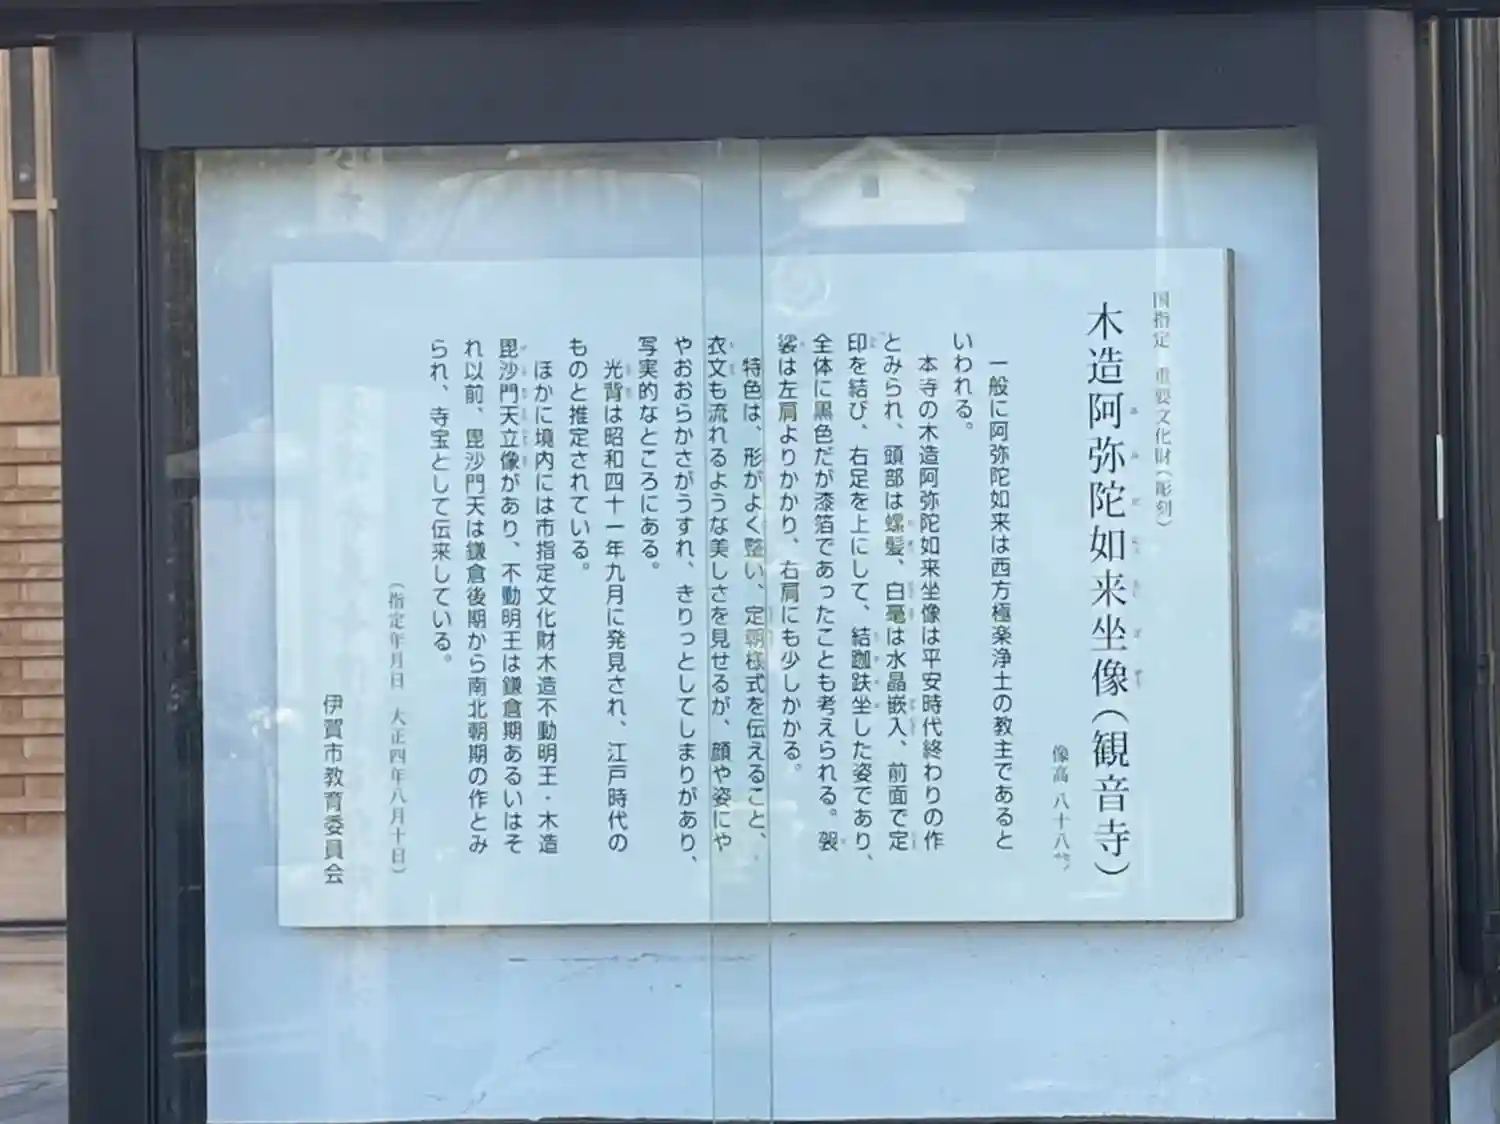 国指定 重要文化財(彫刻)
木造阿弥陀如来坐像(観音寺)
像高 八十八㌢
一般に阿弥陀如来は西方極楽浄土の教主であると
いわれる。
本寺の木造阿弥陀如来坐像は平安時代終わりの作
とみられ、頭部は螺髪、白毫は水晶嵌入、前面で定
印を結び、右足を上にして、結跏趺坐した姿であり、
全体に黒色だが漆箔であったことも考えられる。袈
裟は左肩よりかかり、右肩にも少しかかる。
特色は、形がよく整い、定朝様式を伝えること、
衣文も流れるような美しさを見せるが、顔や姿にや
やおおらかさがうすれ、きりっとしてしまりがあり、
写実的なところにある。
光背は昭和四十一年九月に発見され、江戸時代の
ものと推定されている。
ほかに境内には市指定文化財木造不動明王・木造
毘沙門天立像があり、不動明王は鎌倉期あるいはそ
れ以前、毘沙門天は鎌倉後期から南北朝期の作とみ
られ、寺宝として伝来している。
(指定年月日 大正四年八月十日)
伊賀市教育委員会